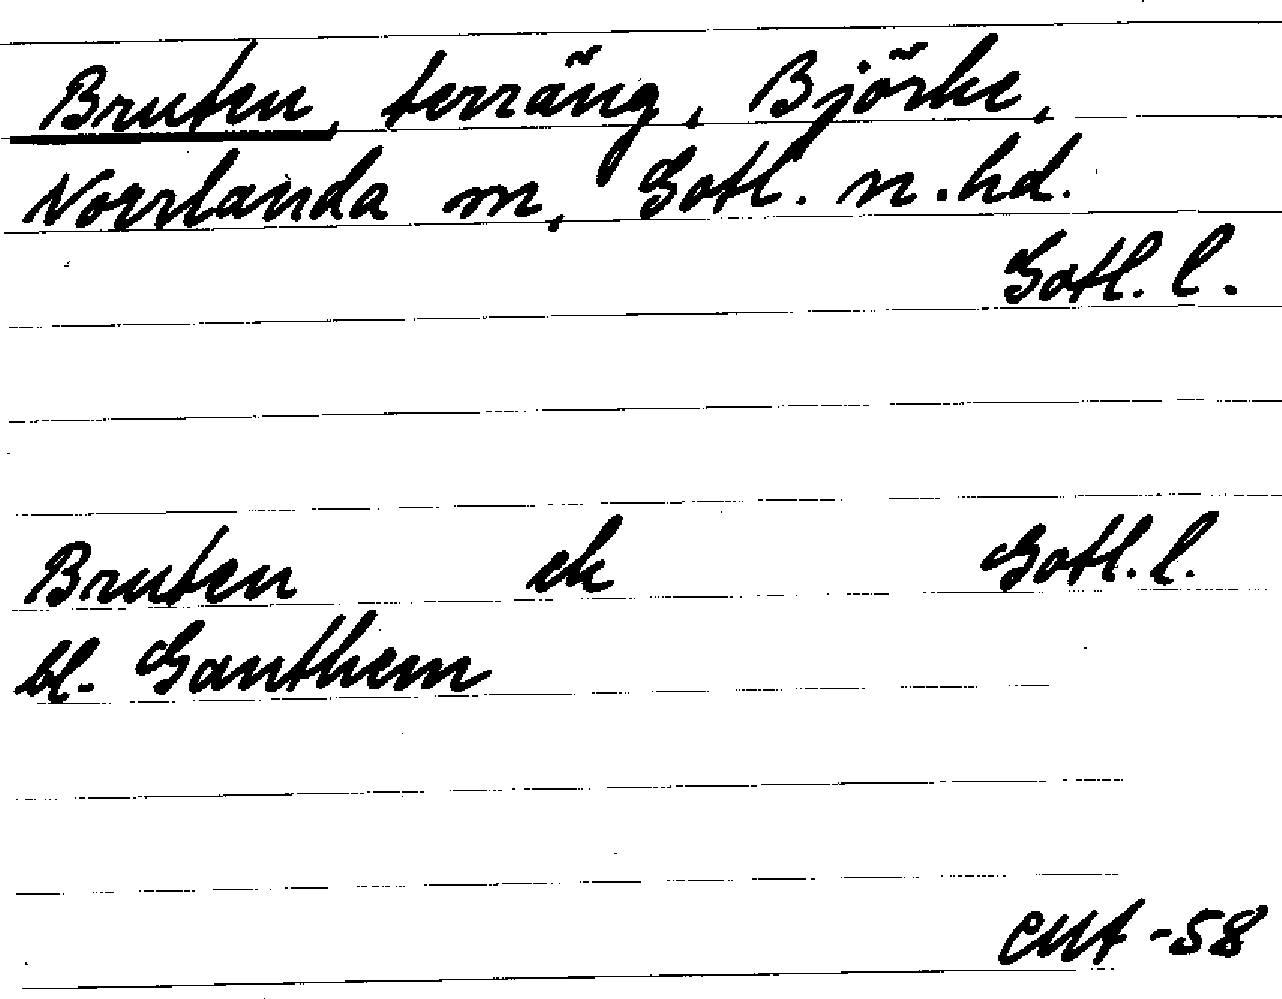 Bruten, terräng, Björke,
Norrlanda m, Gotl. n. hd.
Gotl. l.
Bruten ek Gotl. l.
bl. Ganthem
CMA -58